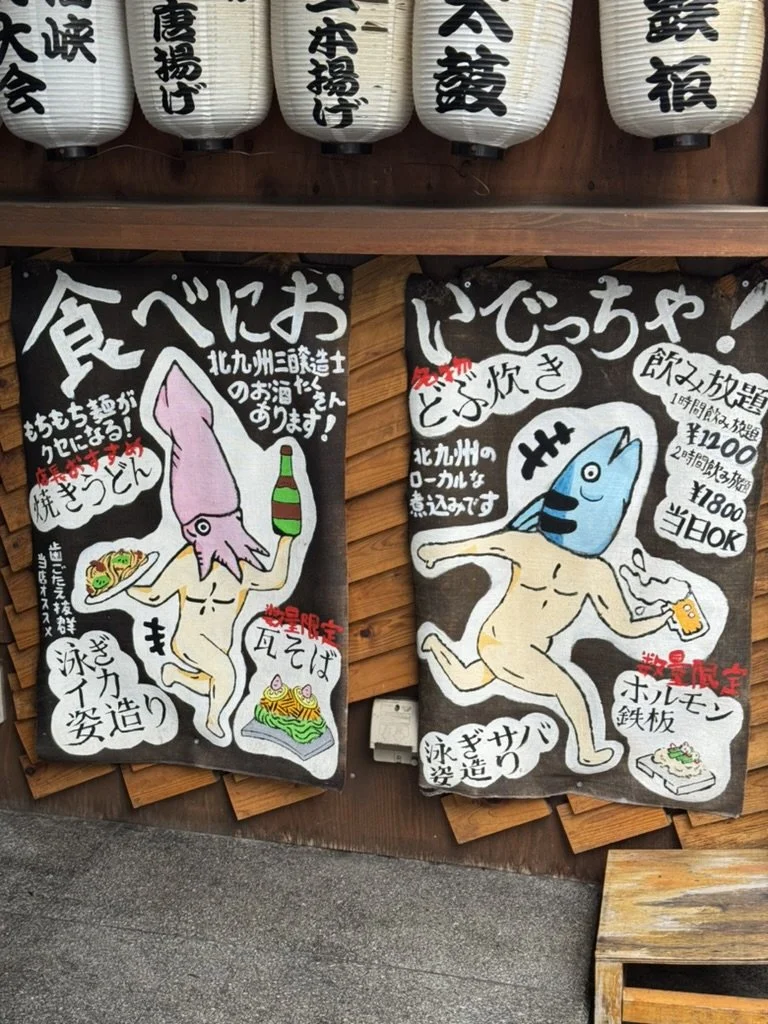 峡
大会
唐揚げ
一本揚げ
太鼓
鉄板
食べにお
北九州三醸造士
のお酒たくさん
あります!
もちもち麺が
クセになる!
店長おすすめ
焼きうどん
歯ごたえ抜群
当店オススメ
泳ぎ
イカ
姿造り
数量限定
瓦そば
いでっちゃ!
名物
どぶ炊き
北九州の
ローカルな
煮込みです
飲み放題
1時間飲み放題
¥1200
2時間飲み放題
¥1800
当日OK
泳ぎサバ
姿造り
数量限定
ホルモン
鉄板